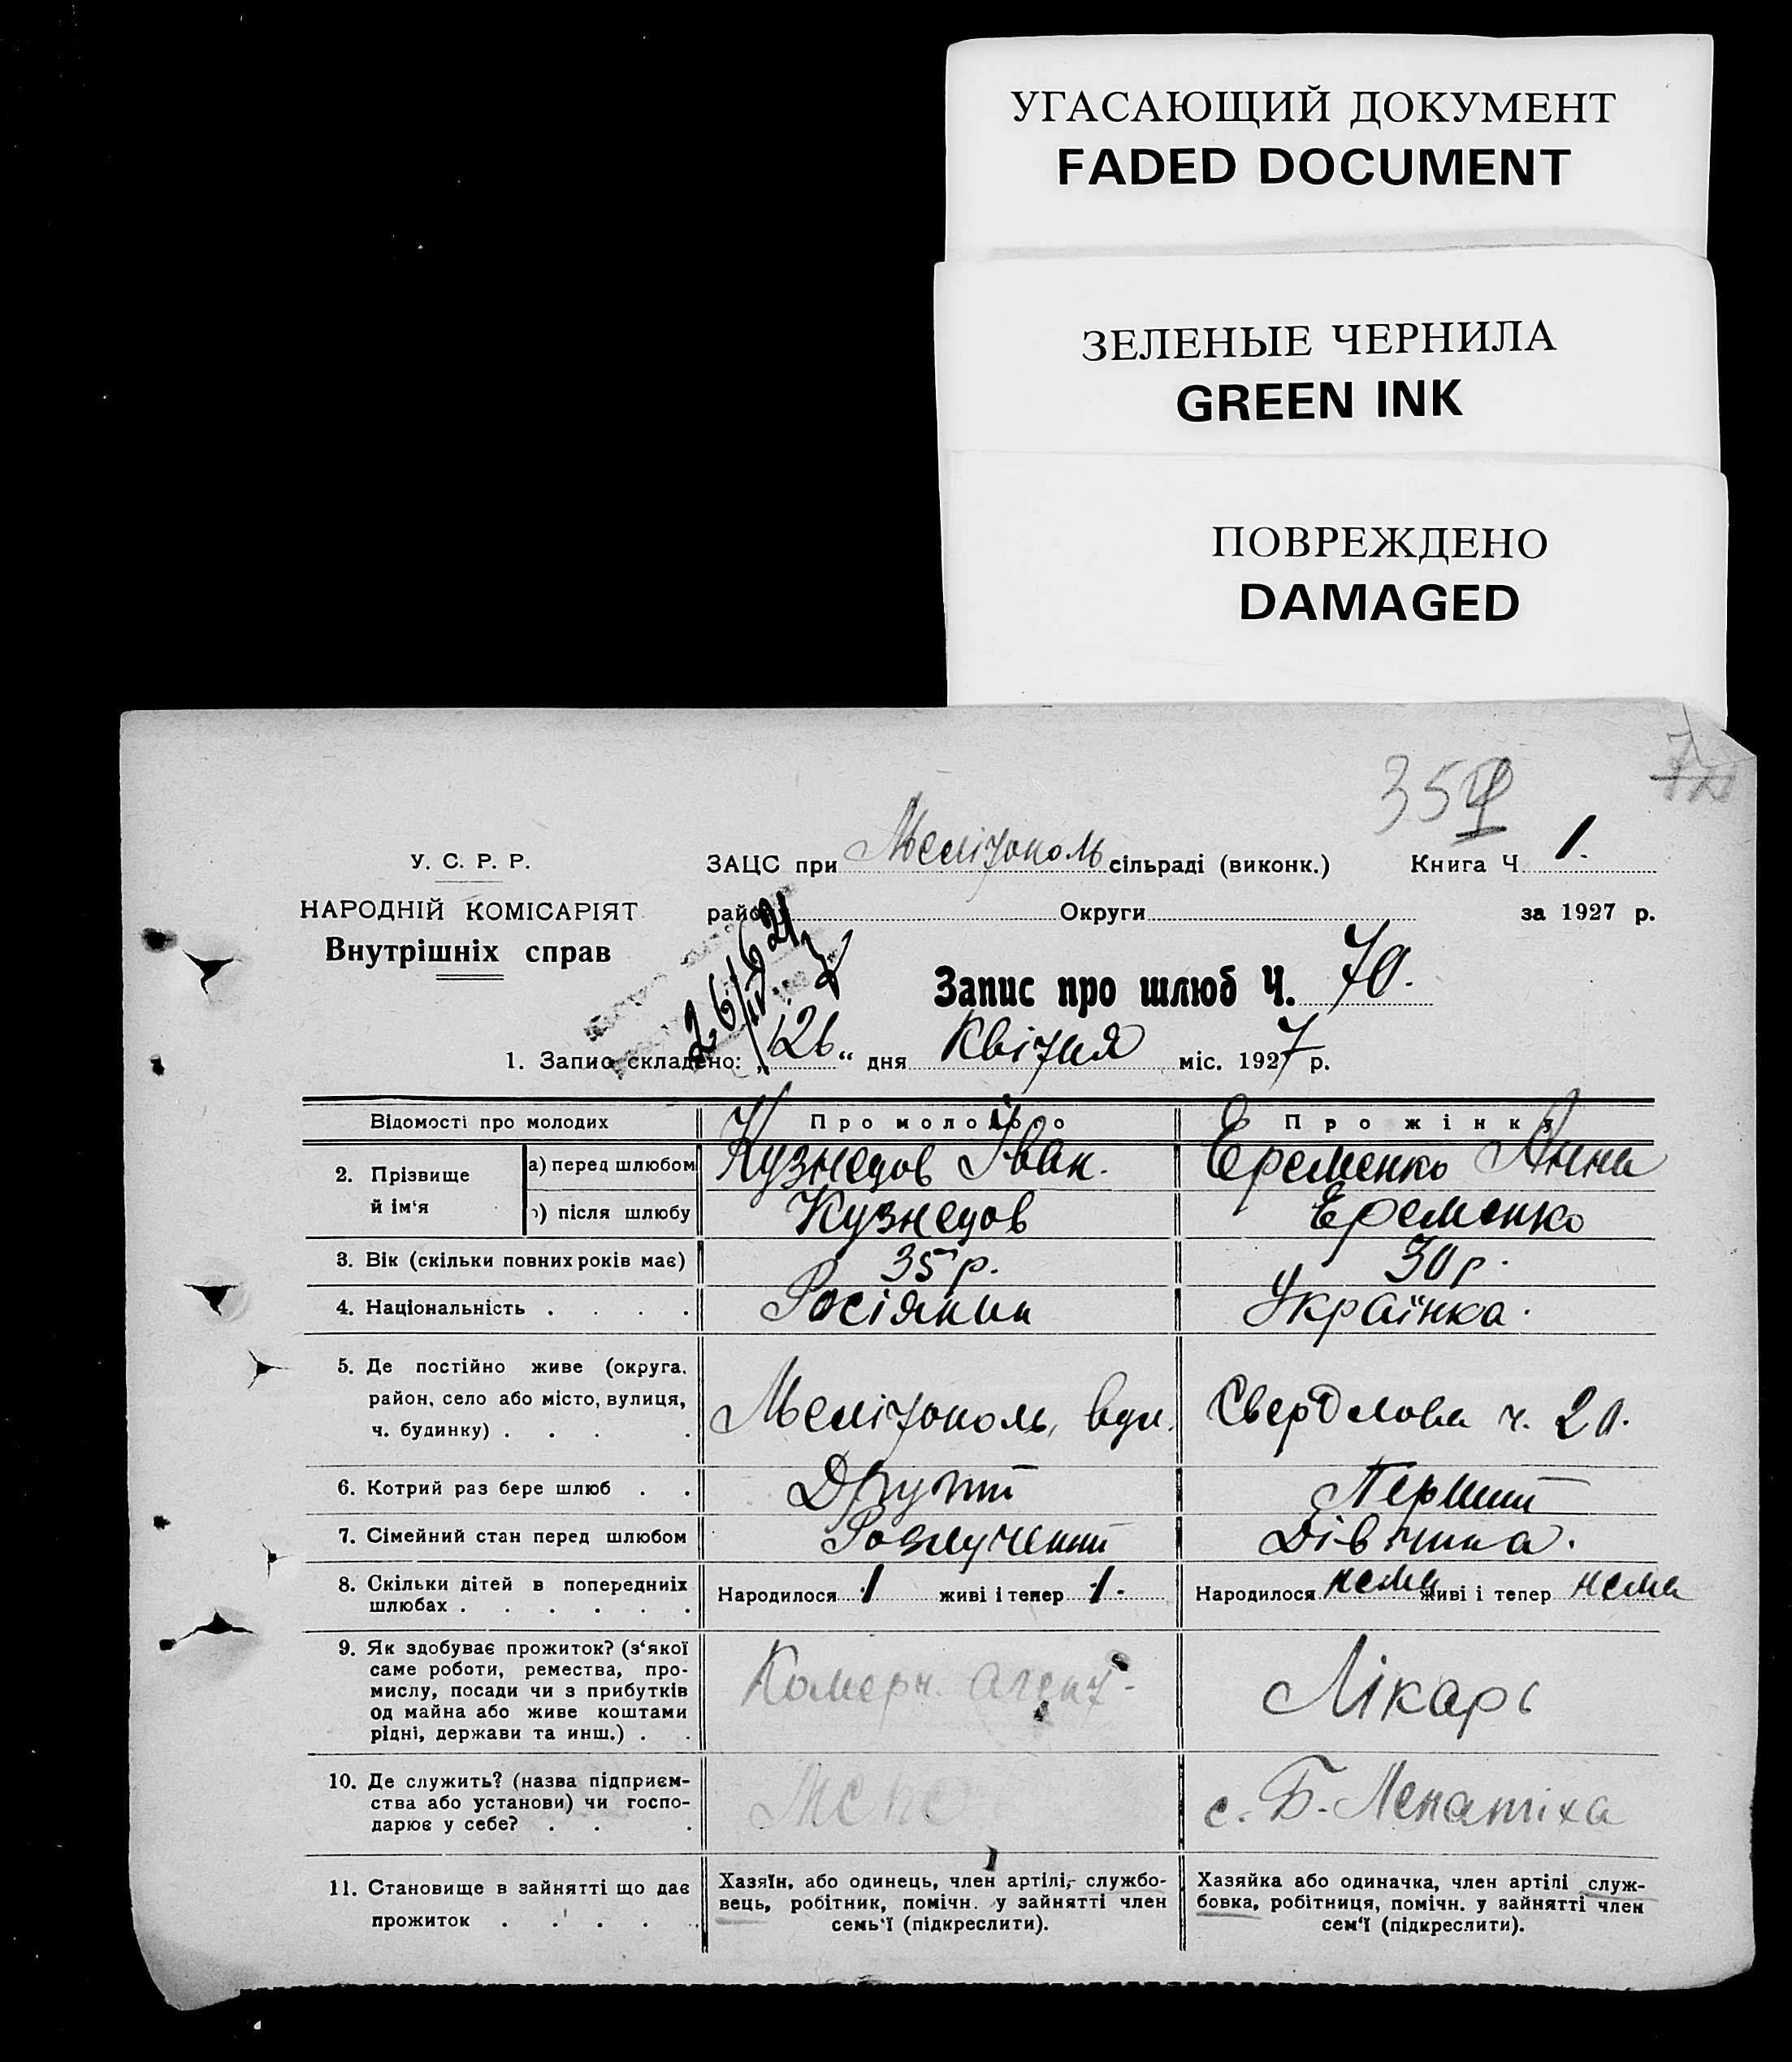 УГАСАЮЩИЙ ДОКУМЕНТ
FADED DOCUMENT
ЗЕЛЕНЫЕ ЧЕРНИЛА
GREEN INK
ПОВРЕЖДЕНО
DAMAGED
35
У. С. Р. Р.
НАРОДНІЙ КОМІСАРІЯТ
Внутрішніх справ
ЗАЦС при Мелітополь сільраді (виконк.) Книга Ч 1.
район Округи за 1927 р.
Запис про шлюб Ч. 70.
1. Запис складено: „26“ дня Квітня міс. 1927 р.
Відомості про молодих Про молодого Про жінку
2. Прізвище й ім‘я а) перед шлюбом Кузнецов Іван. Еременко Анна
б) після шлюбу Кузнецов Еременко
3. Вік (скільки повних років має) 35 р. 30 р.
4. Національність . . . . Росіянин Українка.
5. Де постійно живе (округа.
район, село або місто, вулиця,
ч. будинку) . . . . Мелітополь, вул. Свердлова ч. 20.
6. Котрий раз бере шлюб . . Другий Перший
7. Сімейний стан перед шлюбом Розлучений Дівчина.
8. Скільки дітей в попередніх
шлюбах . . . . . . Народилося 1 живі і тепер 1. Народилося нема живі і тепер нема
9. Як здобуває прожиток? (з‘якої
саме роботи, ремества, про-
мислу, посади чи з прибутків
од майна або живе коштами
рідні, держави та инш.) . . Комерч. агент. Лікарь
10. Де служить? (назва підприєм-
ства або установи) чи госпо-
дарює у себе? . . . с. Б. Лепатиха
11. Становище в зайнятті що дає
прожиток . . . . .
Хазяїн, або одинець, член артілі, службо-
вець, робітник, помічн. у зайнятті член
семь‘ї (підкреслити).
Хазяйка або одиначка, член артілі служ-
бовка, робітниця, помічн. у зайнятті член
сем‘ї (підкреслити).